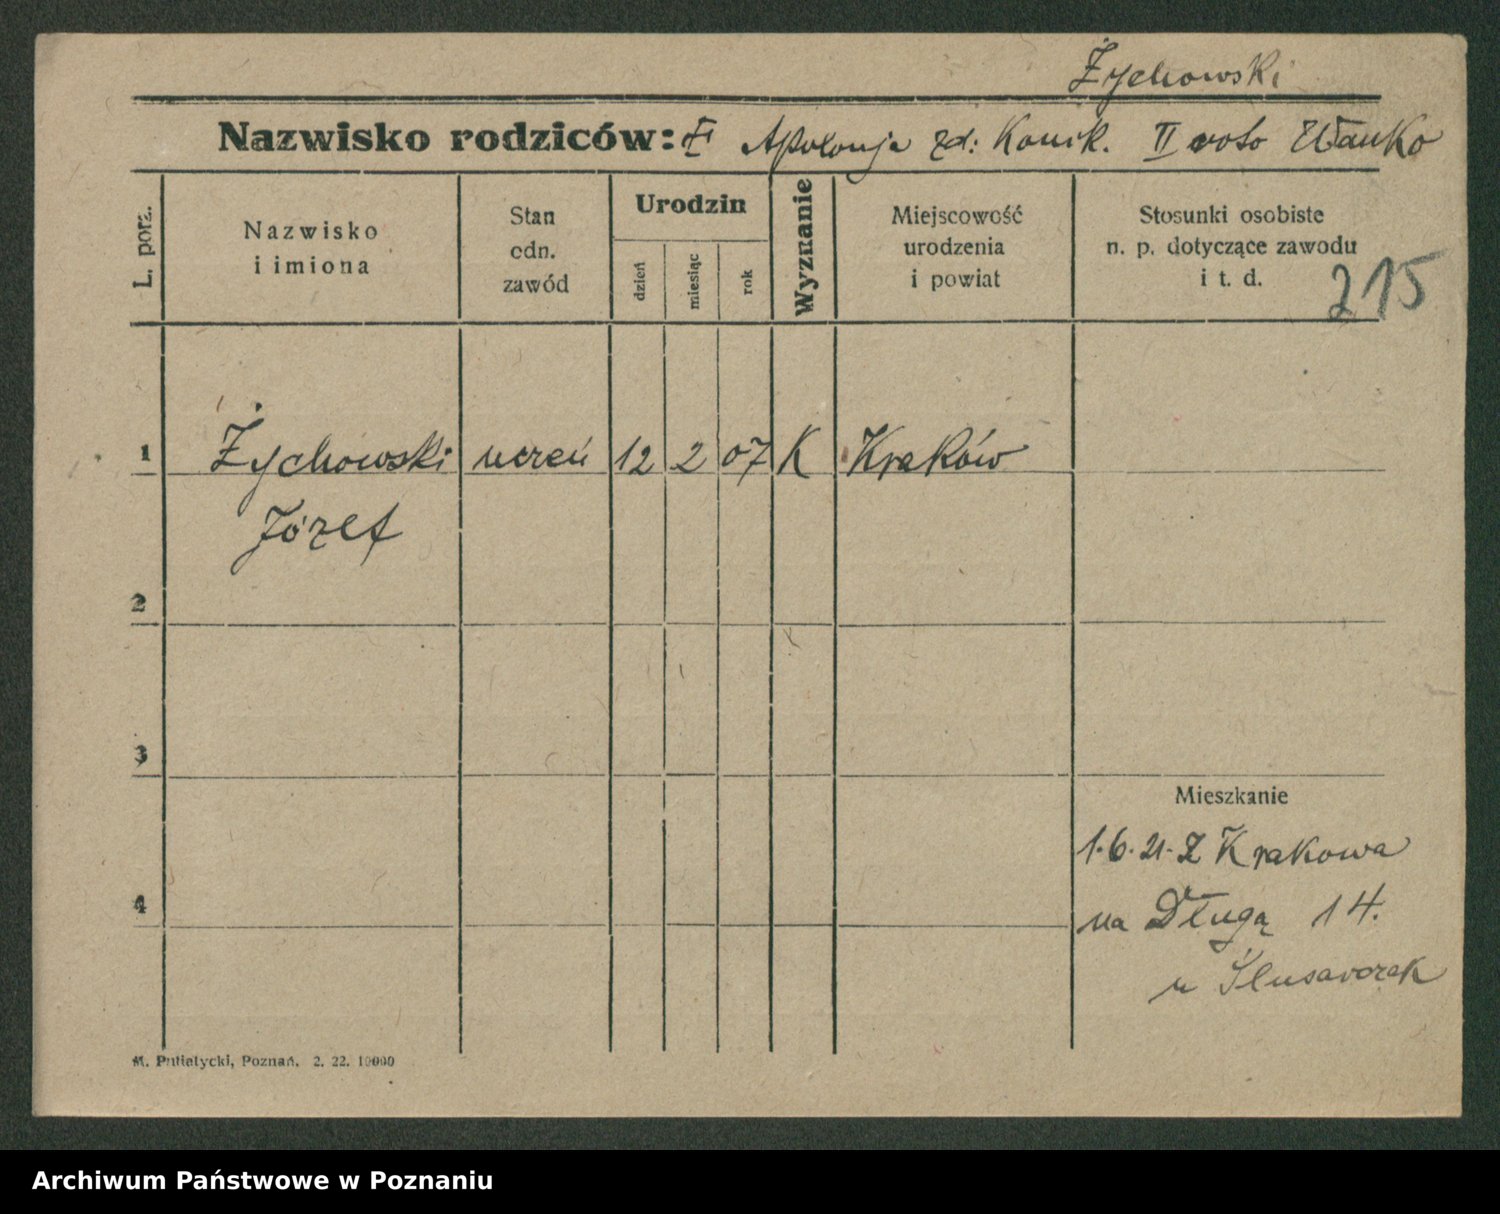 Żychowski
Nazwisko rodziców: Apolonja zd: Konik. II voto Wanko
L. porz.
Nazwisko
i imiona
Stan
cdn.
zawód
Urodzin
dzień
miesiąc
rok
Wyznanie
Miejscowość
urodzenia
i powiat
Stosunki osobiste
n. p. dotyczące zawodu
i t. d.
215
1 Żychowski uczeń 12 2 07 K Kraków
Józef
2
3
Mieszkanie
1.6.21. Z Krakowa
4
na Długą 14.
u
M. Putiatycki, Poznań. 2. 22. 10000
Archiwum Państwowe w Poznaniu